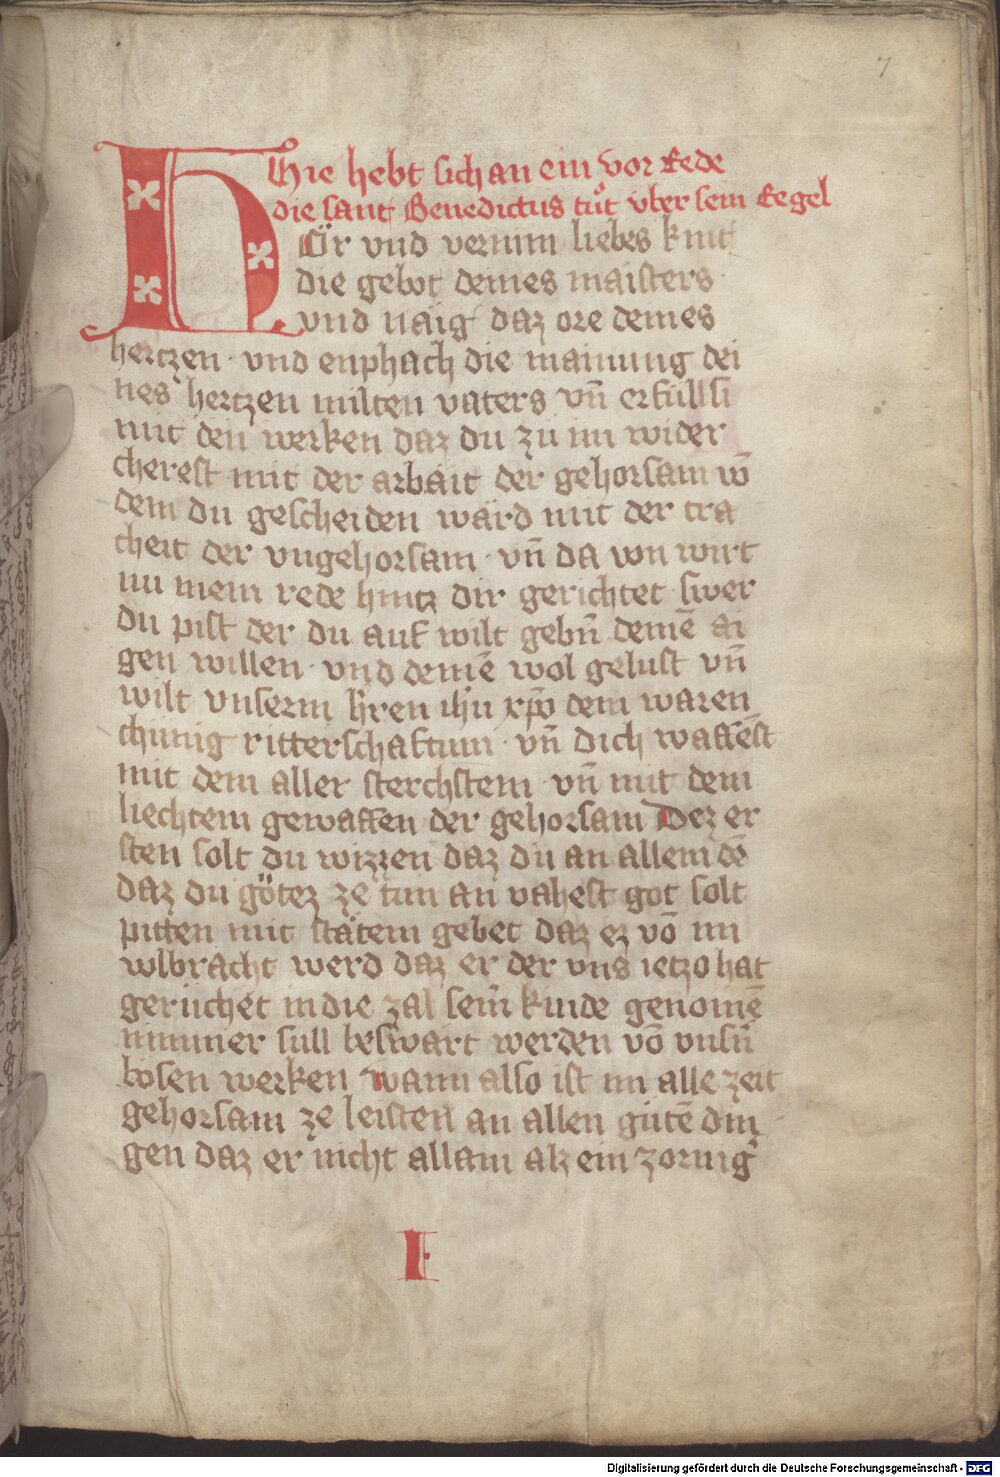 7
Hie hebt sich an ein vor rede
die sant Benedictus tuͦt vber sein regel
HÖr vnd vernim liebes kint
die gebot deines maisters
vnd naig daz ore deines
hertzen · vnd enphach die mainung dei
nes hertzen milten vaters vn̄ erfüllsi
mit den werken daz du zu im wider
cherest mit der arbait der gehorsam vō
dem du gescheiden ward mit der tra
cheit der vngehorsam · vn̄ da von wirt
nu mein rede hintz dir gerichtet swer
du pist der du auf wilt gebn̄ deinē ai
gen willen · vnd deinē wol gelust vn̄
wilt vnserm hr̄en ih̄u xp̄o dem waren
chünig ritterschaftum · vn̄ dich waffēst
mit dem aller sterchstem · vn̄ mit dem
liechtem gewaffen der gehorsam Dez er
sten solt du wizzen daz du an allem dē
daz du götez ze tun an vahest got solt
pitten mit stätem gebet daz ez vō im
volbracht werd daz er der vns ietzo hat
gerüchet in die zal sein̄ kinde genomē
nimmer süll beswärt werden vō vnsn̄
bösen werken wann also ist im alle zeit
gehorsam ze leisten an allen gutē din
gen daz er nicht allain alz ein zornig
I
Digitalisierung gefördert durch die Deutsche Forschungsgemeinschaft - DFG